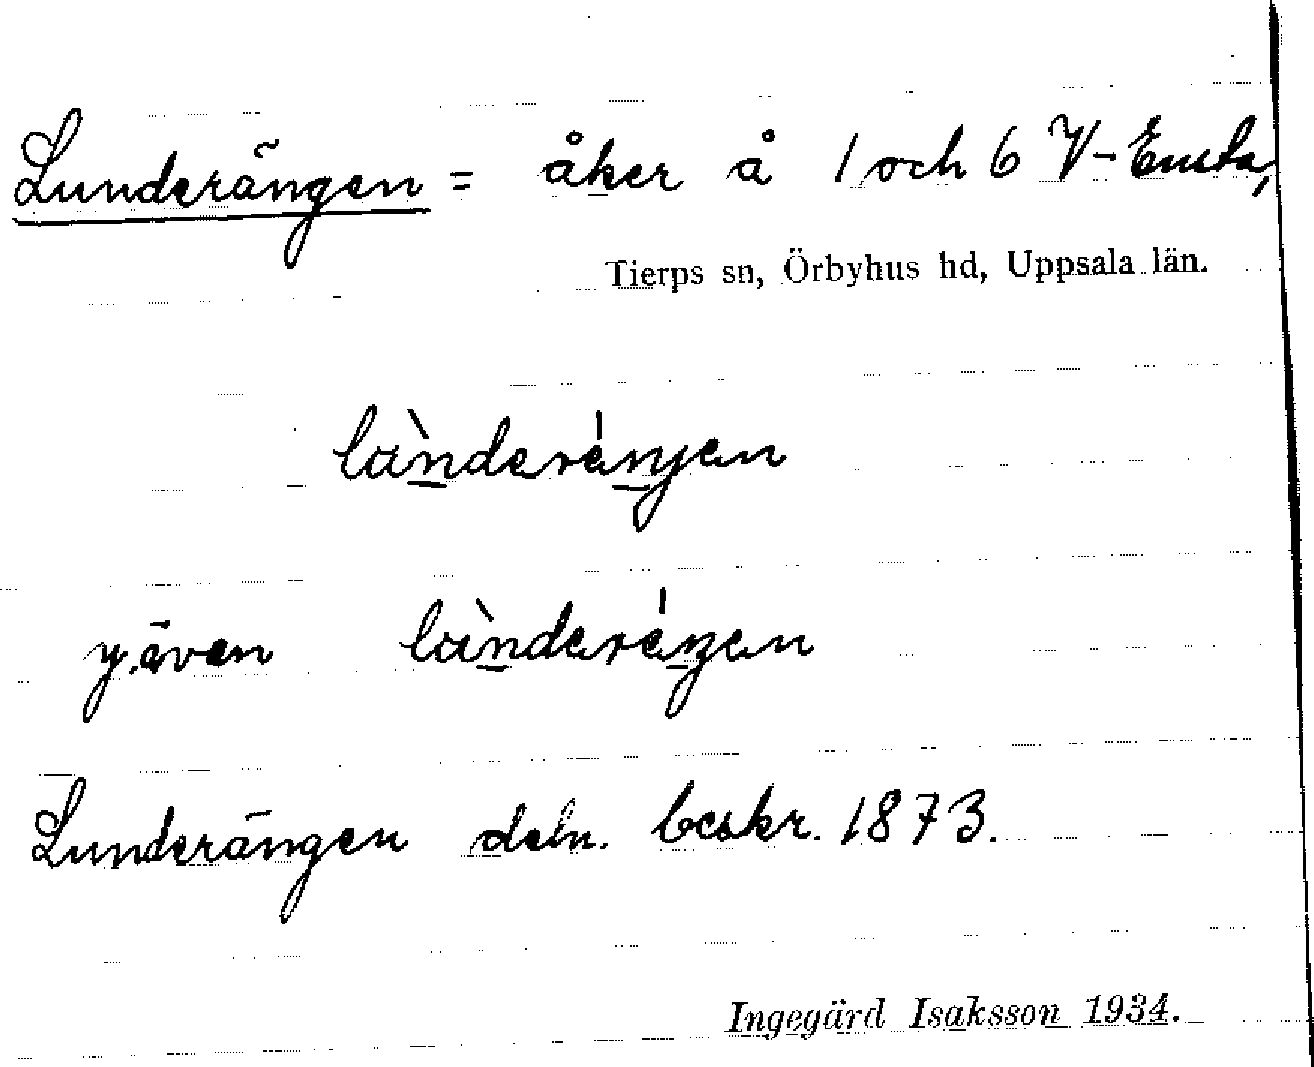 Lunderängen = åker å 1 och 6 V-Ensta,
Tierps sn, Örbyhus hd, Uppsala län.
y. även
Lunderängen deln. beskr. 1873.
Ingegärd Isaksson 1934.